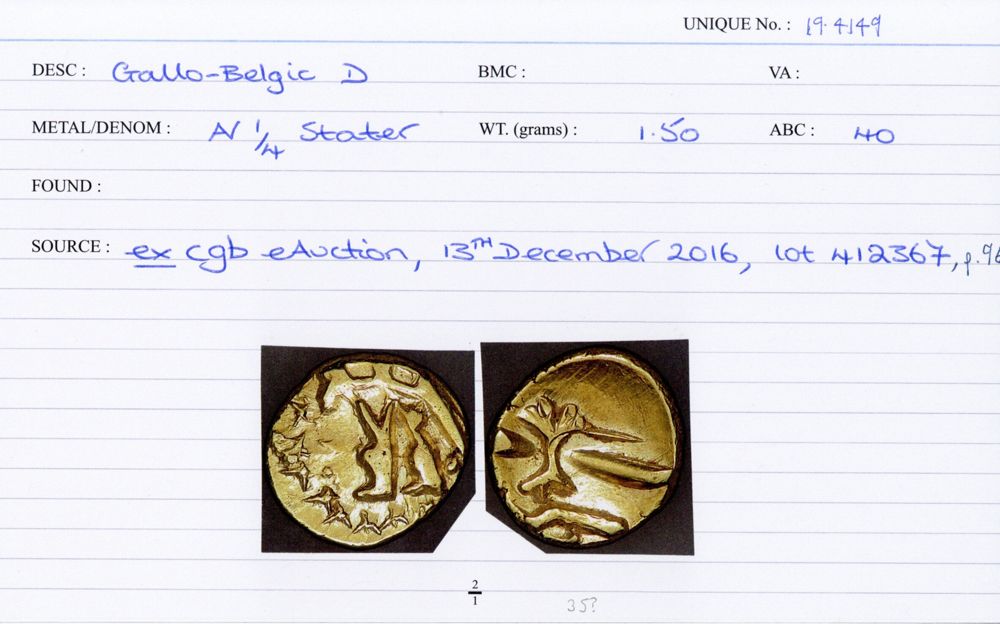 UNIQUE No. : 19.4149
DESC : Gallo-Belgic D BMC : VA :
METAL/DENOM : AV 1/4 Stater WT. (grams) : 1.50 ABC : 40
FOUND :
SOURCE : ex cgb eAuction, 13TH December 2016, lot 412367, p.96
2/1
35?